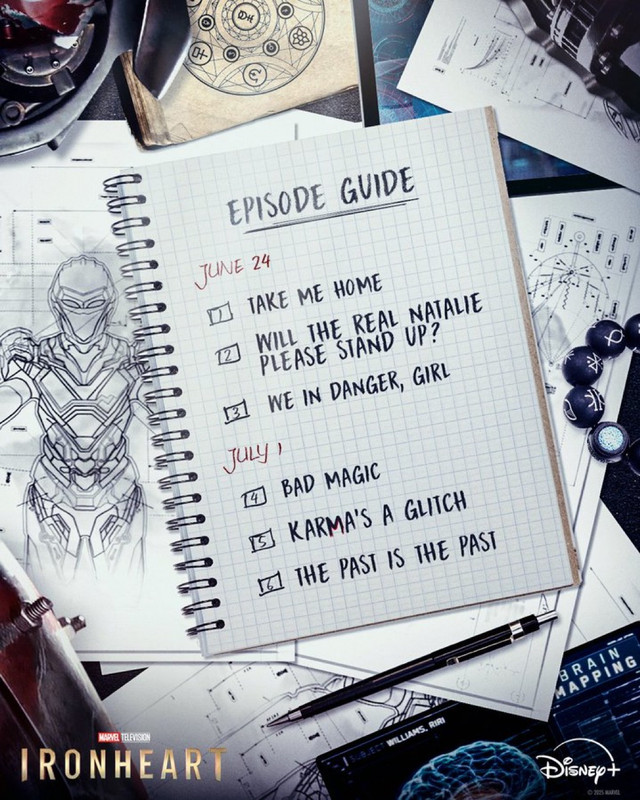 EPISODE GUIDE
JUNE 24
1 TAKE ME HOME
2 WILL THE REAL NATALIE
PLEASE STAND UP?
3 WE IN DANGER, GIRL
JULY 1
4 BAD MAGIC
5 KARMA'S A GLITCH
6 THE PAST IS THE PAST
BRAIN
MAPPING
WILLIAMS, RIRI
MARVEL TELEVISION
IRONHEART
Disney+
© 2025 MARVEL